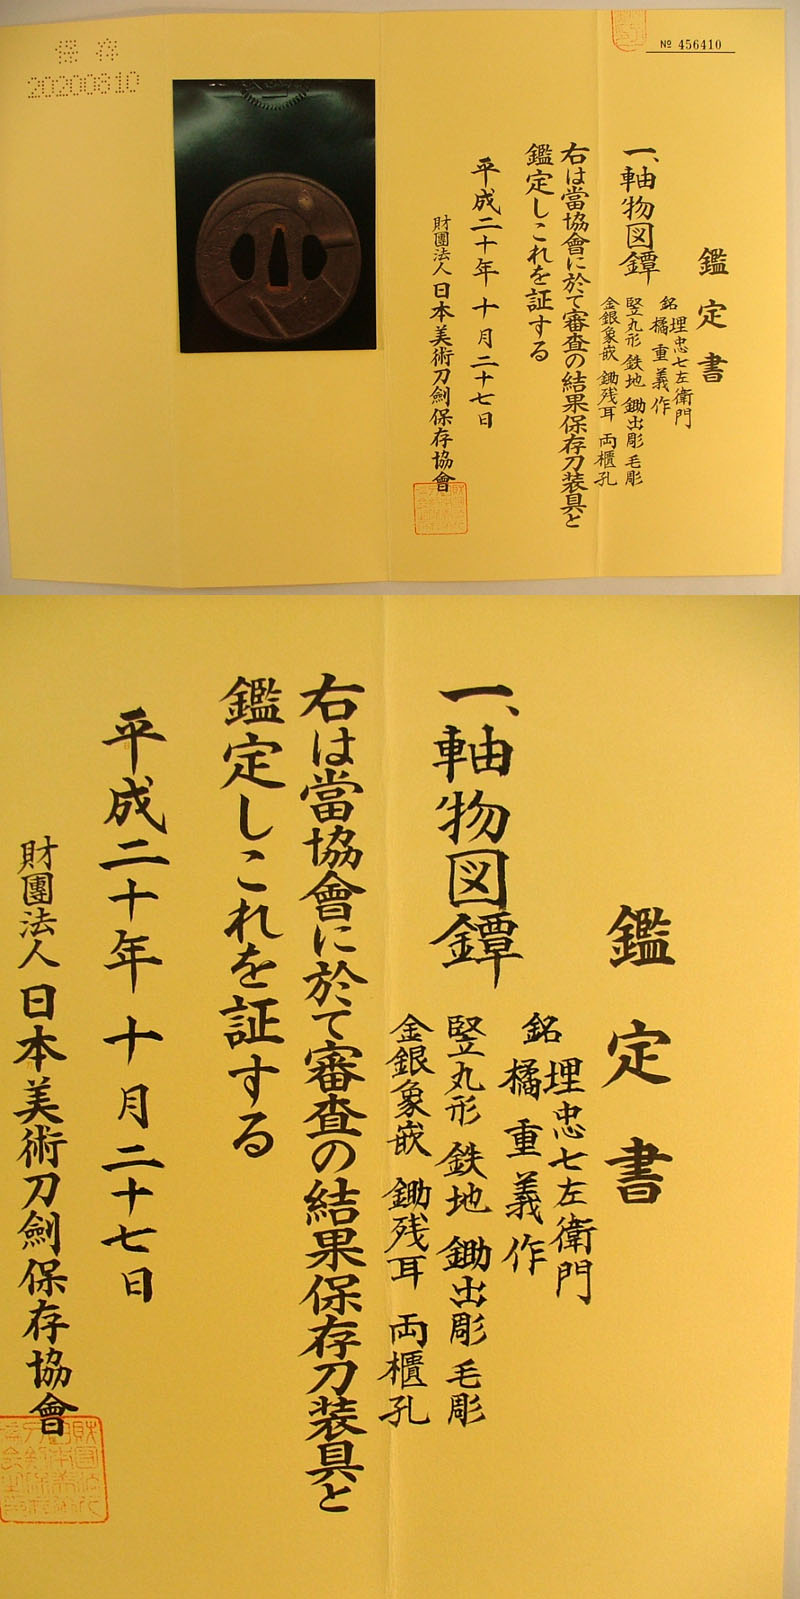 保存
20200810
№ 456410
鑑定書
一、軸物図鐔
銘 埋忠七左衛門
橘重義作
竪丸形 鉄地 鋤出彫 毛彫
金銀象嵌 鋤残耳 両櫃孔
右は當協會に於て審査の結果保存刀装具と
鑑定しこれを証する
平成二十年 十月二十七日
財團法人 日本美術刀劍保存協會
鑑定書
一、軸物図鐔
銘 埋忠七左衛門
橘重義作
竪丸形 鉄地 鋤出彫 毛彫
金銀象嵌 鋤残耳 両櫃孔
右は當協會に於て審査の結果保存刀装具と
鑑定しこれを証する
平成二十年 十月二十七日
財團法人 日本美術刀劍保存協會